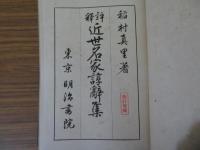 稲村真里著
評釈
近世名家諄辭集
東京 明治書院